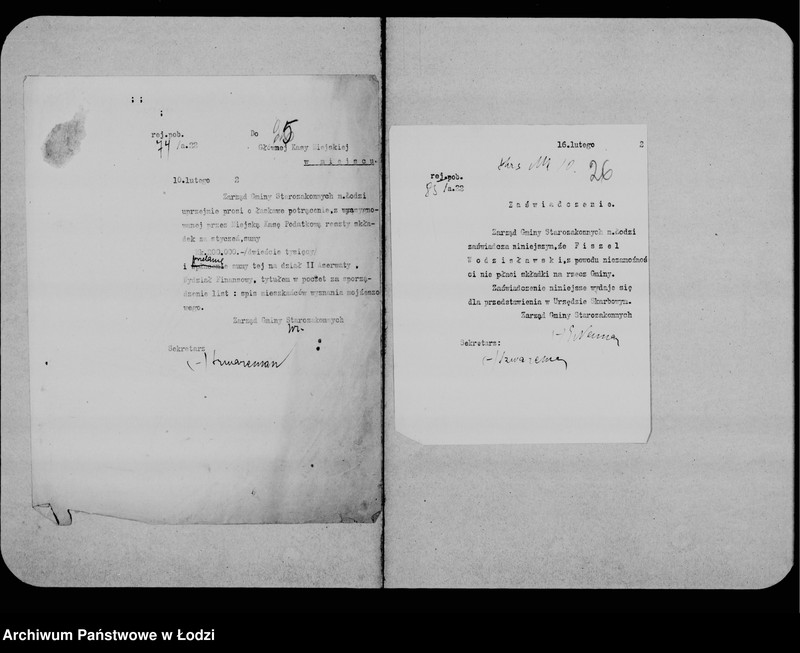 25
rej.pob.
74/a.22
Do
Głównej Kasy Miejskiej
w miejscu.
10.lutego 2
Zarząd Gminy Starozakonnych m.Łodzi
uprzejmie prosi o łaskawe potrącenie,z
wanej przez Miejską Kasę Podatkową reszty skła-
dek za styczeń,sumy
Mk.200.000.-/dwieście tysięcy/
i przelanie sumy tej na dział II
Wydział Finansowy, tytułem w poczet za sporzą-
dzenie list : spis mieszkańców wyznania mojżeszo
wego.
Zarząd Gminy Starozakonnych
Sekretarz
(-) Szwarcman
16.lutego 2
26
rej.pob.
85/a.22
Zaświadczenie.
Zarząd Gminy Starozakonnych m.Łodzi
zaświadcza niniejszym,że Fiszel
Wodzisławski,z powodu niezamożnoś
ci nie płaci składki na rzecz Gminy.
Zaświadczenie niniejsze wydaje się
dla przedstawienia w Urzędzie Skarbowym.
Zarząd Gminy Starozakonnych
Sekretarz:
(-) Szwarcman
Archiwum Państwowe w Łodzi